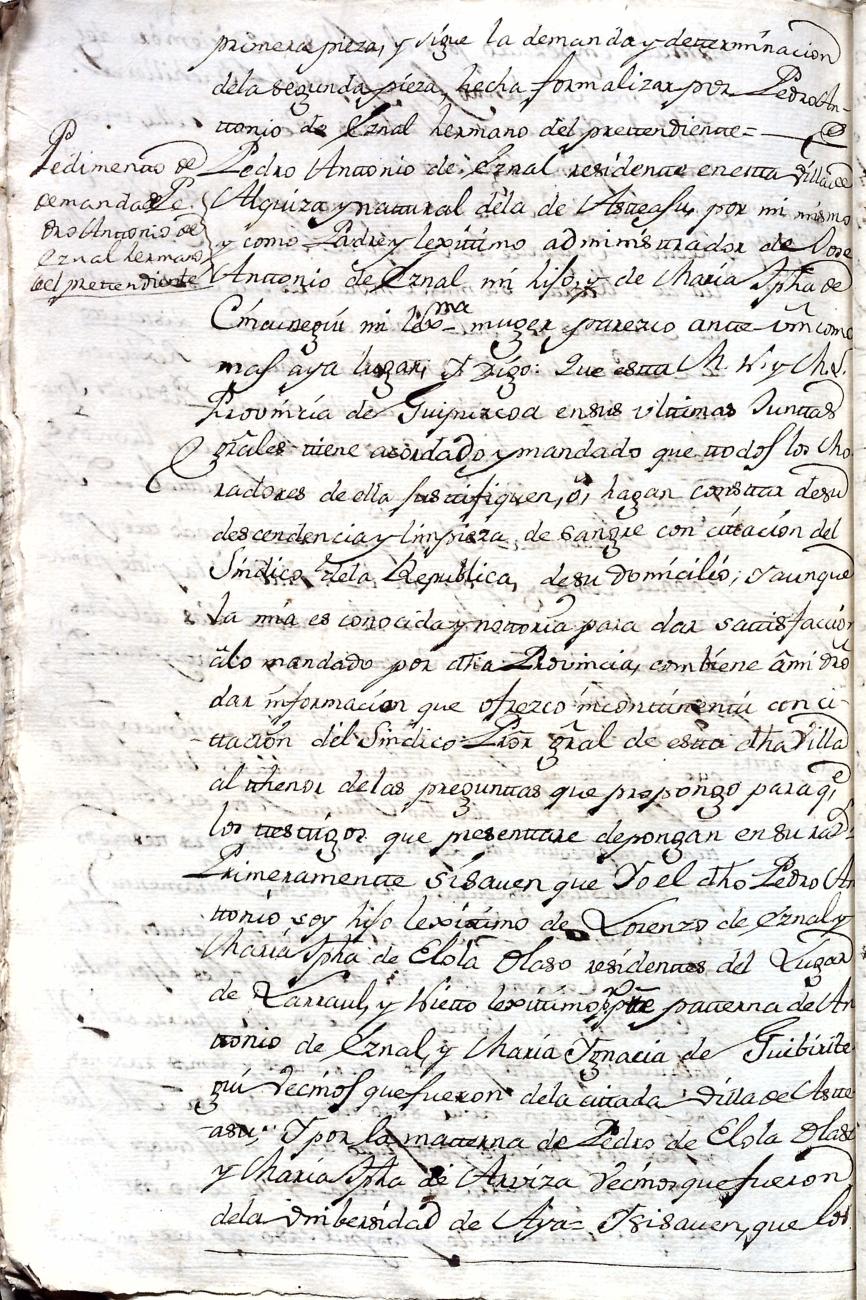 primera pieza, y sigue la demanda y determinacion
dela segunda pieza, hecha formalizar por Pedro An-
ttonio de Eznal hermano del prettendiente=
Pedimentto de
demanda de Pe
dro Anttonio de
Eznal hermano
del prettendiente
Pedro Anttonio de Eznal residente en estta villa de
Alquiza y nattural dela de Asteasu, por mi mismo
y como Padre y lexitimo administrador de Jose
Anttonio de Eznal mi hijo, y de Maria Jpha de
mi lexma muger, parezco ante vm como
mas aya lugar, Y Digo: Que estta M. N. y M. L.
Provincia de Guipuzcoa en sus ultimas Junttas
grales tiene acordado y mandado que ttodos los Mo
radores de ella justifiquen, ó, hagan consttar de su
descendencia y limpieza de sangre con cittacion del
Sindico dela Republica, de su domicilio; y aunque
la mia es conocida y nottoria para dar sattisfaccion
álo mandado por dha Provincia, combiene á mi dro
dar informacion que ofrezco incontinenti con ci-
ttacion del Sindico Pror gral de estta dha Villa
al thenor de las preguntas que propongo para qe
los testigos que presenttare depongan en su razn
Primeramentte si saven que Yo el dho Pedro An
ttonio soy hijo lexitimo de Lorenzo de Eznal y
Maria Jpha de Elola Olaso residentes del Lugar
de Larraul, y Nietto lexitimo por pte patterna de An
ttonio de Eznal, y Maria Ygnacia de Guibirite
gui Vecinos que fueron dela citada villa de Astte
asu,, Y por la matterna de Pedro de Elola Olaso
y Maria Jpha de Arviza Vecinos que fueron
dela Vnibersidad de Aya= Y si saven, que los